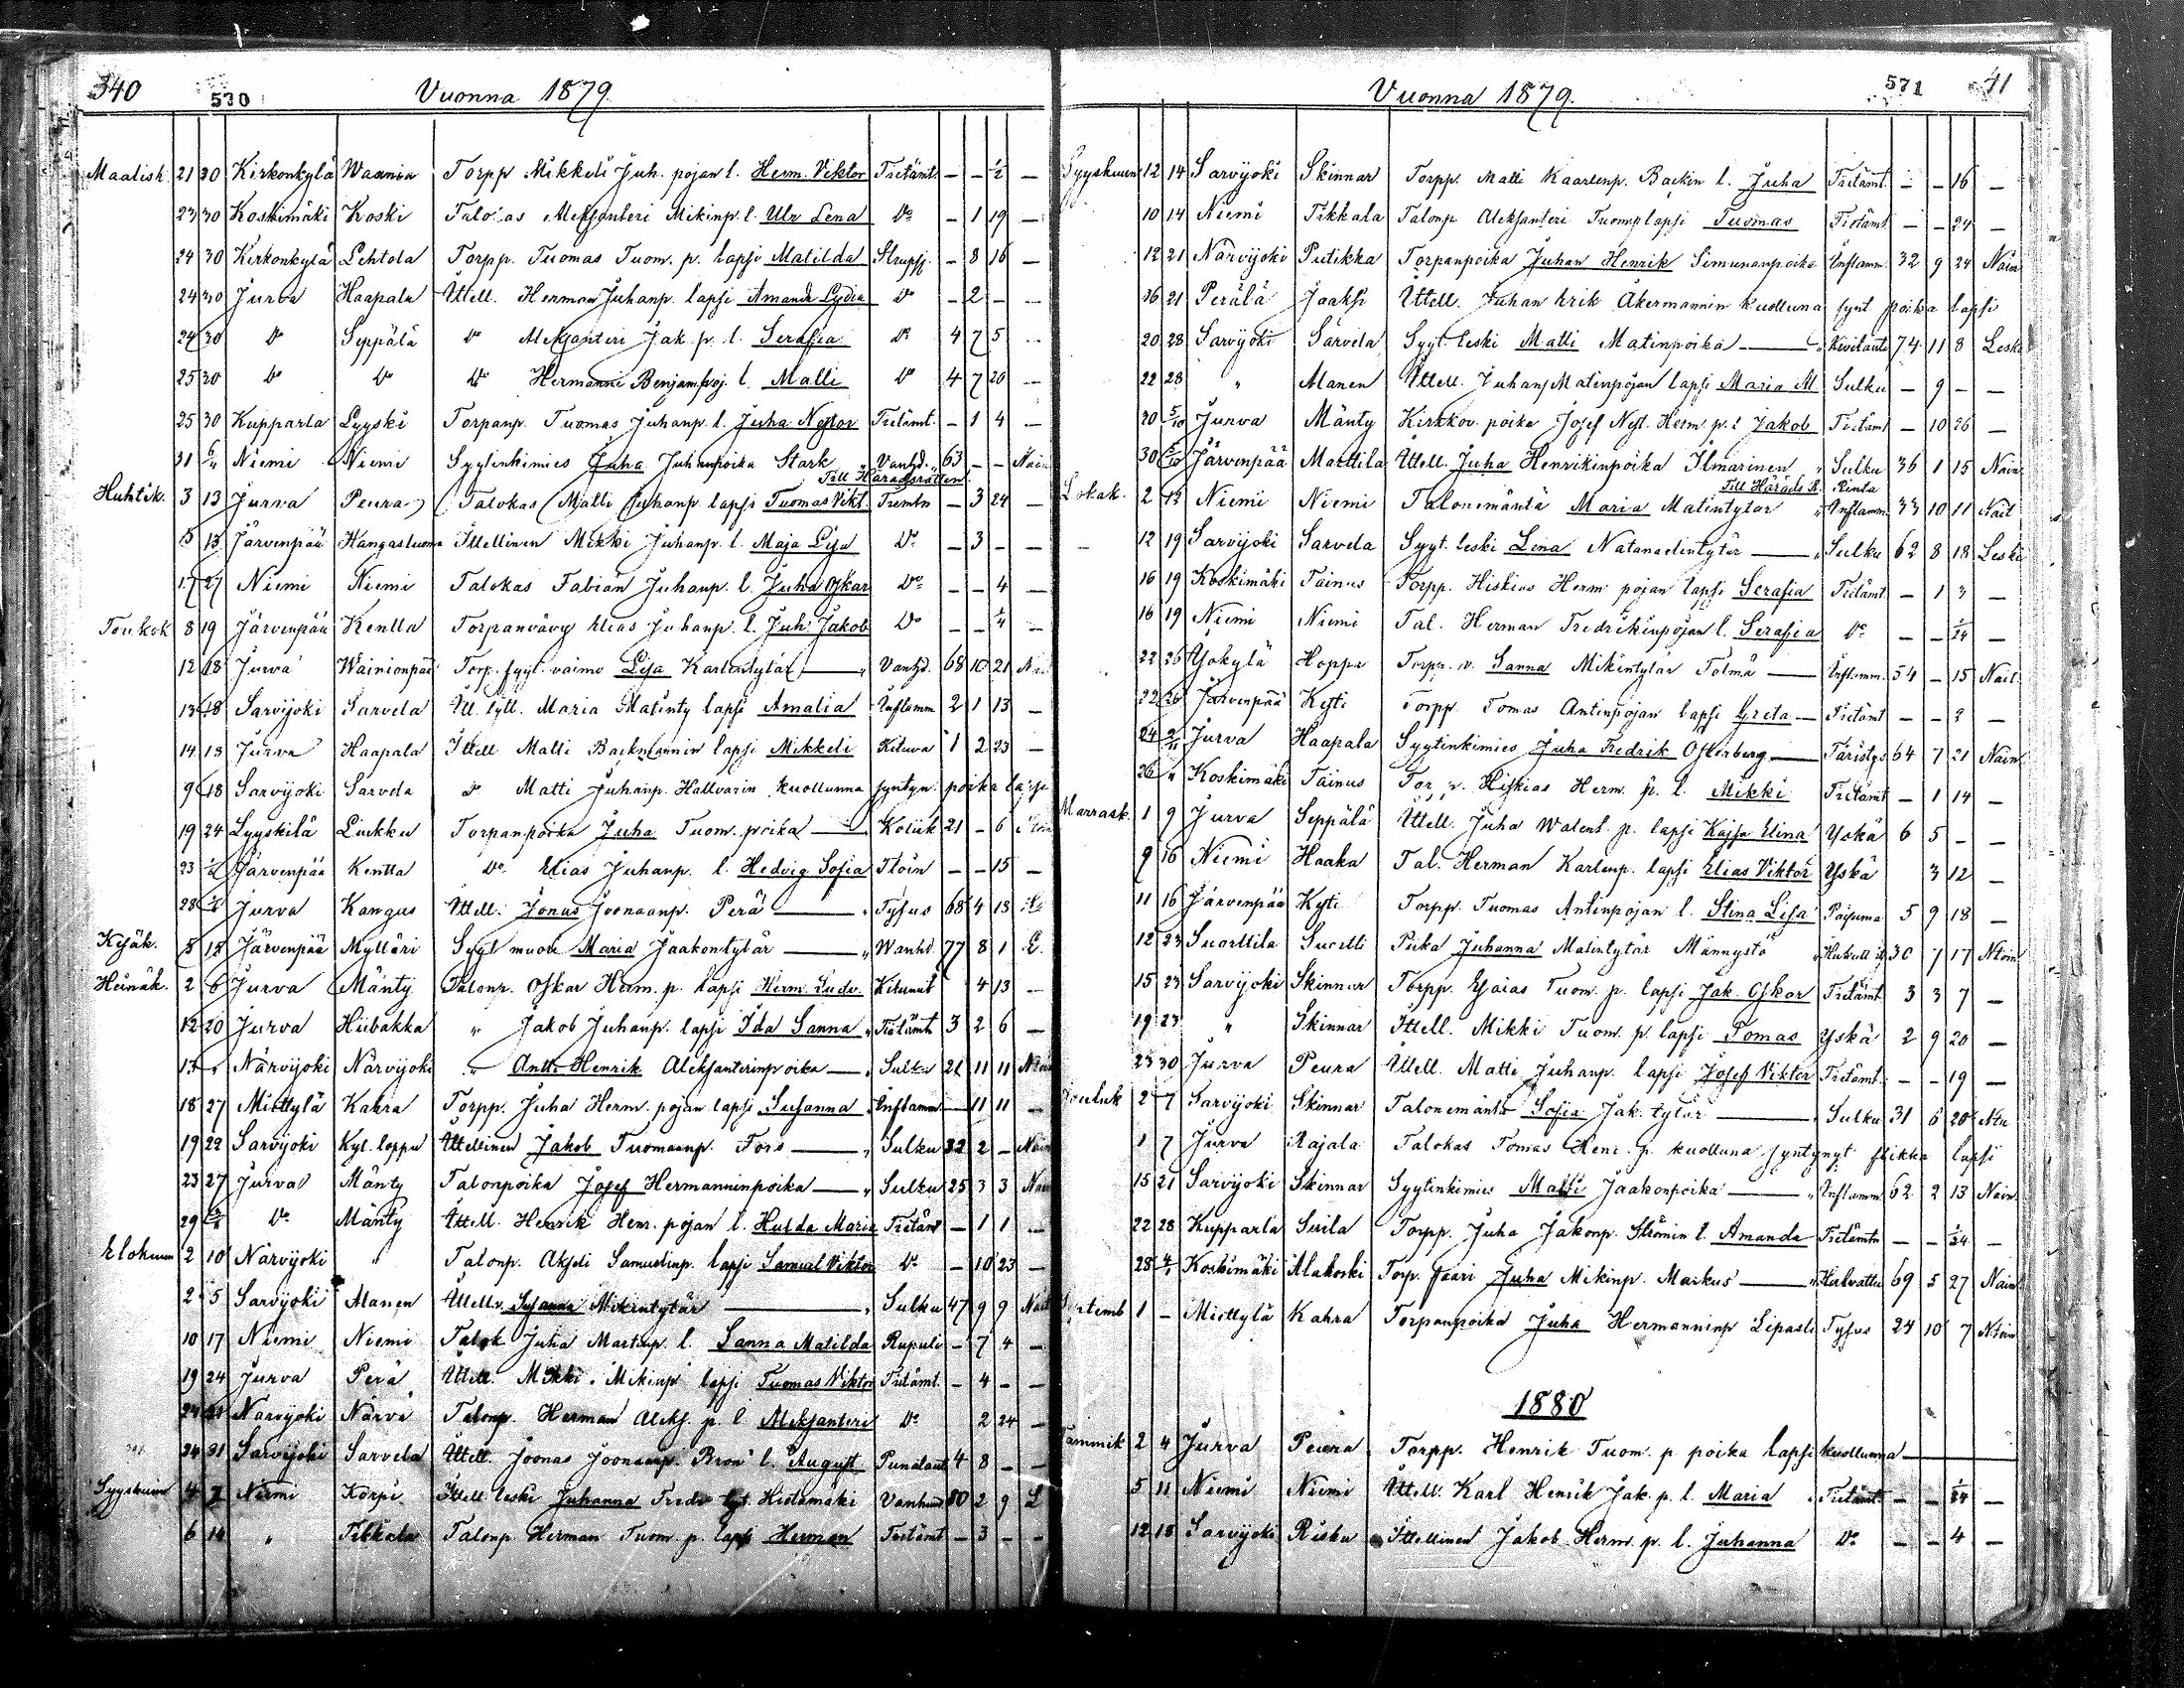 340 530 Vuonna 1879.
Maalisk. 21 30 Kirkonkylä Waania Torpp Mikkeli Juh. pojan l. Herm. Viktor Tietämt. — — ½ —
23 30 Koskimäki Koski Talokas Aleksanteri Mikinp. l. Ulr Lena Do — 1 19 —
24 30 Kirkonkylä Lehtola Torpp. Tuomas Tuom. p. lapsi Matilda Strupsj. — 8 16 —
24 30 Jurva Haapala Ittell. Herman Juhanp. lapsi Amanda Lydia Do — 2 — —
24 30 Do Seppälä Do Aleksanteri Jak. p. l. Serafia Do 4 7 5 —
25 30 Do Do Do Hermanni Benjam. poj. l. Matti Do 4 7 20 —
25 30 Kupparla Lyyski Torpanp. Tuomas Juhanp. l. Juha Nestor Tietämt. — 1 4 —
31 6/4 Niemi Niemi Syytinkimies Juha Juhanpoika Stark Vanhd. 63 — — Nain
Till Häradsrätten
Huhtik. 3 13 Jurva Peura Talokas Matti Juhanp. lapsi Tuomas Vikt. Tiemtn — 3 24 —
5 13 Järvenpää Kangasluoma Ittellinen Mikki Juhanp. l. Maja Lisa Do — 3 — —
17 27 Niemi Niemi Talokas Fabian Juhanp. l. Juha Oskar Do — — 4 —
Toukok 8 19 Järvenpää Kentta Torpanvävy Elias Juhanp. l. Juh. Jakob Do — — ¼ —
12 18 Jurva Wainionpää Torp. syyt. vaimo Lisa Karlentytär — Vanhd. 68 10 21
13 18 Sarvijoki Sarvela Itt. tytt. Maria Matinty lapsi Amalia Inflamm 2 1 13 —
14 18 Jurva Haapala Ittell Matti Backmannin lapsi Mikkeli Kituva 1 2 23 —
9 18 Sarvijoki Sarvela Do Matti Juhanp. Hallvarin kuollunna syntyn. poika lapsi
19 24 Lyyskilä Lukku Torpanpoika Juha Tuom. poika — Koliik 21 — 6
23 Järvenpää Kentta Do Elias Juhanp. l. Hedvig Sofia Tloin — — 15 —
28 Jurva Kangus Ittell. Jonas Joonaanp. Perä — Tyfus 68 4 13
Kesäk. 8 15 Järvenpää Mylläri Syyt muori Maria Jaakontytär — Wanhd. 77 8 1 L.
Heinäk. 2 6 Jurva Mänty Talonp. Oskar Herm. p. lapsi Herm. Ludv. Kitunut 4 13 —
12 20 Jurva Hiibakka " Jakob Juhanp. lapsi Ida Sanna " Tietämtn 3 2 6 —
13 " Närvijoki Närvijoki " Antti Henrik Aleksanterinpoika — Sulku 21 11 11
18 27 Miettylä Kahra Torpp. Juha Herm. pojan lapsi Susanna Inflamm — 11 11 —
19 22 Sarvijoki Kyl. loppu Ittellinen Jakob Tuomaanp. Fors — Sulku 32 2 — Nain
23 27 Jurva Mänty Talonpoika Josef Hermanninpoika — Sulku 25 3 3 Nain
29 Do Mänty Ittell. Henrik Henr. pojan l. Hulda Maria Tietämt — 1 1 —
Elokuun 2 10 Närvijoki " Talonp. Akseli Samuelinp. lapsi Samuel Viktor Do — 10 23 —
2 5 Sarvijoki Alanen Ittellv. Susanna Mikintytär — Sulku 47 9 9
10 17 Niemi Niemi Talok Juha Martinp. l. Sanna Matilda Rupuli — 7 4 —
19 24 Jurva Perä Ittell. Mikki Mikinp lapsi Tuomas Viktor Tietämt. — 4 — —
24 31 Närvijoki Närvi Talonp. Herman Aleks. p. l. Aleksanteri Do 2 24 —
24 31 Sarvijoki Sarvela Ittell. Joonas Joonaanp. Bron l. August Punataut 4 8 — —
Syyskuun 4 7 Niemi Korpi Ittell. leski Juhanna Fredr. tyt. Hietamäki Vanhuus 80 2 9 L
6 14 " Tikkala Talonp. Herman Tuom. p. lapsi Herman Tietämt — 3 — —
Vuonna 1879. 571 41
Syyskuun 12 14 Sarvijoki Skinnar Torpp. Matti Kaarlenp. Backin l. Juha Tietämt. — — 16 —
10 14 Niemi Tikkala Talonp Aleksanteri Tuom.p lapsi Tuomas Tietämt — — 24 —
12 21 Närvijoki Putikka Torpanpoika Juhan Henrik Simunanpoika Inflamm. 32 9 24 Nain
16 21 Perälä Jaakši Ittell. Juhan Erik Åkermannin kuolluna synt. poika lapsi
20 28 Sarvijoki Sarvela Syyt. leski Matti Matinpoika — Kivitauti 74 11 8 Leski
22 28 " Alanen Ittell. Juhan Matinpojan lapsi Maria M Sulku — 9 — —
30 5/10 Jurva Mänty Kirkkov. poika Josef Nest. Herm. p. l. Jakob Tietämt — 10 26 —
30 5/10 Järvenpää Marttila Ittell. Juha Henrikinpoika Ilmarinen Sulku 36 1 15 Nain
Till Härads R. Rinta
Lokak. 2 12 Niemi Niemi Talonemäntä Maria Matintytär " Inflamm 33 10 11 Nait
12 19 Sarvijoki Sarvela Syyt. leski Lena Natanaelintytär — Sulku 62 8 18 Leski
16 19 Koskimäki Tainus Torpp. Hiskias Herm pojan lapsi Serafia Tietämt — 1 3 —
16 19 Niemi Niemi Tal. Herman Fredrikinpojan l. Serafia Do — — 1/24 —
22 26 Yjokylä Hoppa Torpp. v. Sanna Mikintytär Tolmä — Inflamm. 54 — 15 Nait.
22 26 Järvenpää Kyti Torpp. Tomas Antinpojan lapsi Greta — Tietämt — — 2 —
24 2/11 Jurva Haapala Syytinkimies Juha Fredrik Osterberg — Täristys 64 7 21 Nain
26 " Koskimäki Tainus Torp. Hiskias Herm. p. l. Mikki Tietämt — 1 14 —
Marrask. 1 9 Jurva Seppälä Ittell. Juha Walent. p. lapsi Kajsa Elina Yskä 6 5 — —
9 16 Niemi Haaka Tal. Herman Karlenp. lapsi Elias Viktor Yskä 3 12 —
11 16 Järvenpää Kyti Torpp. Tuomas Antinpojan l. Stina Lisa 5 9 18 —
12 23 Suorttila Suortti Piika Juhanna Matintytär Männystö 30 7 17 Ntoin
15 23 Sarvijoki Skinnar Torpp. Esaias Tuom. p. lapsi Jak. Oskar Tietämt. 3 3 7 —
19 23 " Skinnar Ittell. Mikki Tuom. p. lapsi Tomas Yskä 2 9 20 —
23 30 Jurva Peura Ittell. Matti Juhanp. lapsi Josef Viktor Tietämt. — — 19 —
Jouluk 2 7 Sarvijoki Skinnar Talonemäntä Sofia Jak. tytär — Sulku 31 6 20
1 7 Jurva Rajala Talokas Tomas Henr. p. kuolluna syntynyt flikka lapsi
15 21 Sarvijoki Skinnar Syytinkimies Matti Jaakonpoika — Inflamm 62 2 13 Nain.
22 28 Kupparla Surila Torpp. Juha Jakonp. Strömin l. Amanda Tietämtn — — 1/24 —
28 4/1 Koskimäki Alakoski Torp. faari Juha Mikinp. Markus — Halvattu 69 5 27 Nain.
Septemb 1 — Miettylä Kahra Torpanpoika Juha Hermanninp Lipasti Tyfus 24 10 7 Ntoin
1880
Tammik 2 4 Jurva Peura Torpp. Henrik Tuom. p poika lapsi kuollunna —
5 11 Niemi Niemi Ittell. Karl Henrik Jak. p. l. Maria Tietämt. — — 1/24 —
12 18 Sarvijoki Risku Ittellinen Jakob Herm. p. l. Juhanna Do — — 4 —